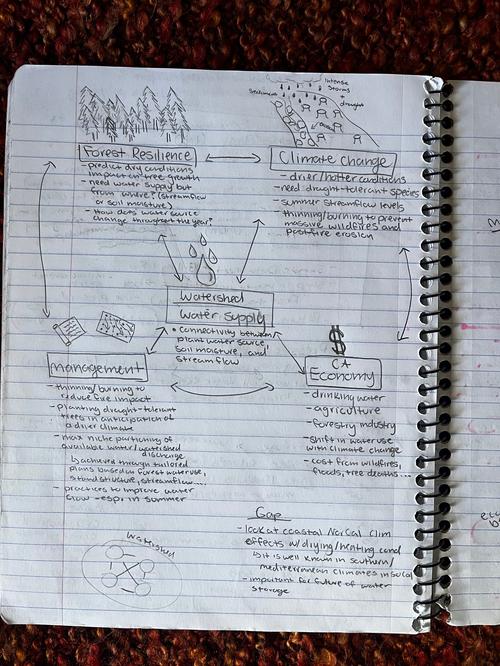 Intense
Storms
Sediment
drought
Forest Resilience
- predict dry conditions
impact on tree growth
- need water supply but
from where? (streamflow
or soil moisture)
- How does water source
change throughout the year?
Climate change
- drier/hotter conditions
- need draught-tolerant species
- summer streamflow levels
- thinning/burning to prevent
massive wildfires and
postfire erosion
Watershed
Water supply
• connectivity between
plant water source,
soil moisture, and
streamflow
management
- thinning/burning to
reduce fire impact
- planting draught-tolerant
trees in anticipation of
a drier climate
- max niche partioning of
available water/watershed
discharge
↳ achieved through tailored
plans based on forest water use,
stand structure, streamflow....
- practices to improve water
flow -esp. in summer
$
CA
Economy
- drinking water
- agriculture
- forestry industry
- shift in water use
with climate change
- cost from wildfires,
floods, tree deaths....
Gap
- look at coastal NorCal clim
effects w/ drying/heating cond
↳ it is well known in southern/
mediterranean climates in SoCal
- important for future of water
storage
Watershed